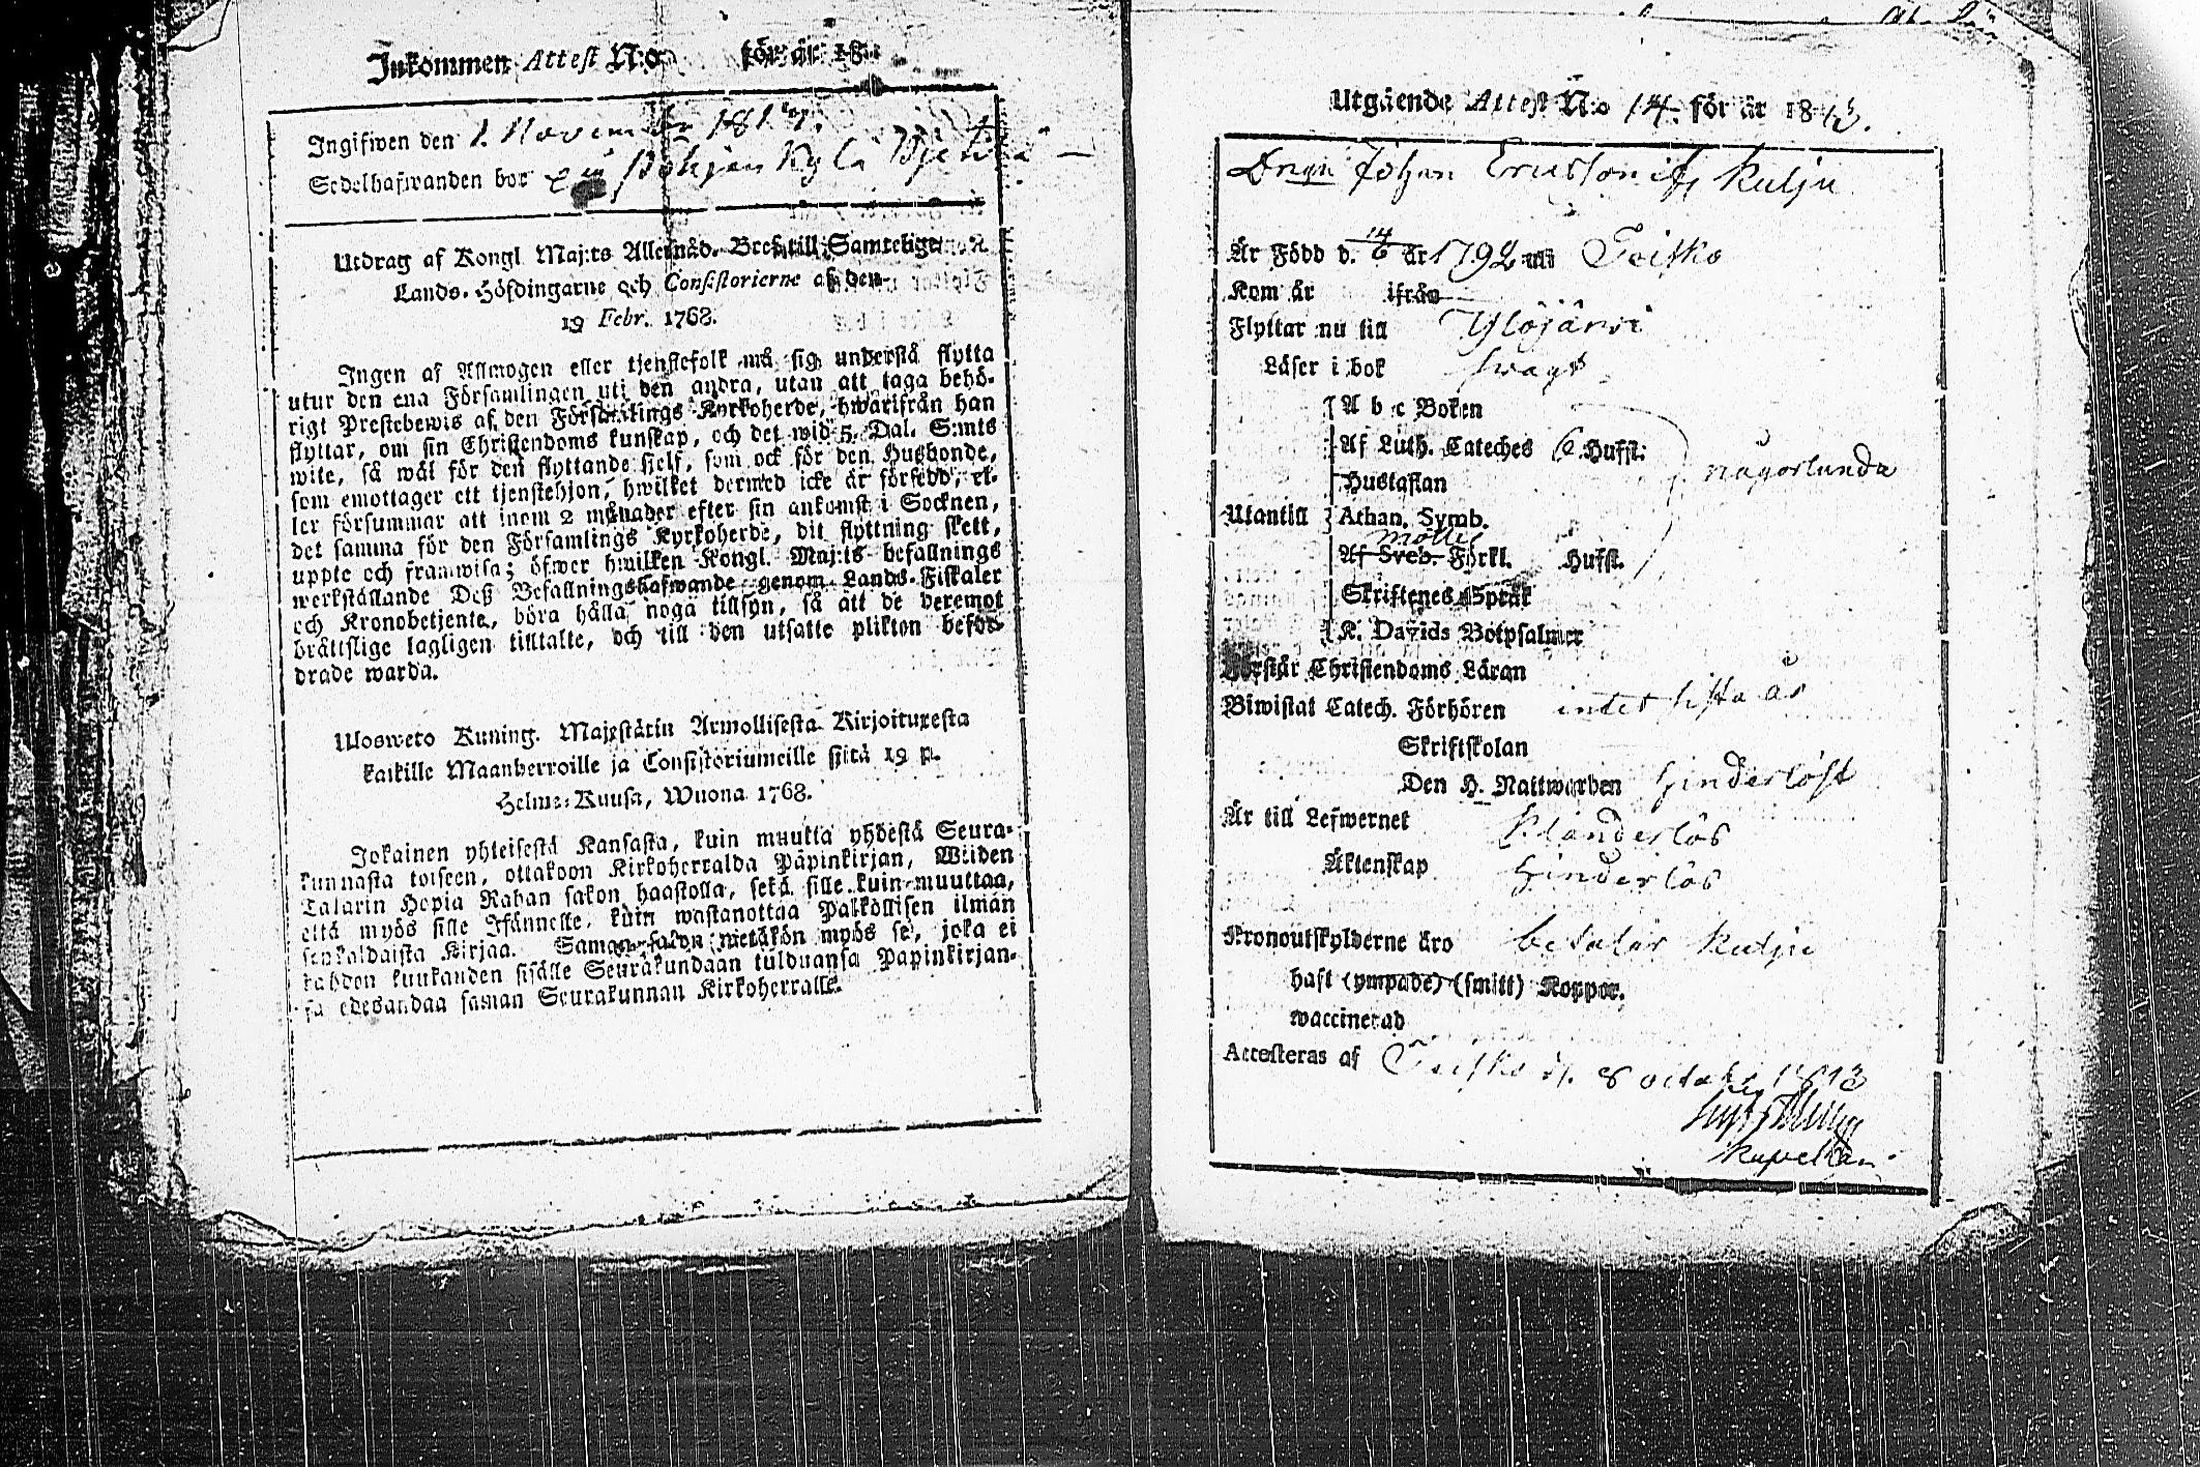 Inkommen Attest N:o för år 18
Ingifwen den 1. November 181
Sedelhafwanden bor Pohjankylä
Utdrag af Kongl. Maj:ts Allernåd. Bref till Samtelige
Lands-Höfdingarne och Consistorierne af den
19 Febr. 1768.
Ingen af Allmogen eller tjenstefolk må sig understå flytta
utur den ena Församlingen uti den andra, utan att taga behö-
rigt Prestebewis af den Församlings Kyrkoherde, hwarifrån han
flyttar, om sin Christendoms kunskap, och det wid 5. Dal. S:mts
wite, så wäl för den flyttande sjelf, som ock för den Husbonde,
som emottager ett tjenstehjon, hwilket dermed icke är försedd, el-
ler försummar att inom 2 månader efter sin ankomst i Socknen,
det samma för den Församlings Kyrkoherde, dit flyttning skett,
uppte och framwisa; öfwer hwilken Kongl. Maj:ts befallnings
werkställande Deß Befallningshafwande genom Lands-Fiskaler
och Kronobetjente, böra hålla noga tillsyn, så att de deremot
brättslige lagligen tilltalte, och till den utsatte plikten beför-
drade warda.
Ulosweto Kuning. Majestätin Armollisesta Kirjoituxesta
kaikille Maanherroille ja Consistoriumeille siitä 19 p.
Helme-Kuusa, Wuona 1768.
Jokainen yhteisestä Kansasta, kuin muutta yhdestä Seura-
kunnasta toiseen, ottakoon Kirkoherralda Papinkirjan, Wiiden
Talarin Hopia Rahan sakon haastolla, sekä sille kuin muuttaa,
että myös sille Isännelle, kuin wastanottaa Palkollisen ilman
senkaldaista Kirjaa. Saman sakon wetäkön myös se, joka ei
kahden kuukauden sisälle Seurakundaan tulduansa Papinkirjan-
sa edesandaa saman Seurakunnan Kirkoherralle.
Utgående Attest N:o 14. för år 1813.
Drgn Johan Ericsson ifr Kulju
Är Född d. 14/6 år 1792 uti Teisko
Kom år ifrån
Flyttar nu till Ylöjärvi
Läser i bok swagt
A b c Boken
Af Luth. Cateches 6 Hufst.
Hustaflan
någorlunda
Utantill Athan. Symb.
Af Sveb. Förkl. Hufst.
Skriftenes Språk
K. Davids Botpsalmer
Förstår Christendoms Läran
Biwistat Catech. Förhören intet sista år
Skriftskolan
Den H. Nattwarden hinderlöst
Är till Lefwernet klanderlös
Äktenskap hinderlös
Kronoutskylderne äro betalar Kulju
haft (ympade) (smitt) Koppor.
waccinerad
Attesteras af Teisko d. 8 octobr 1813
kapellan